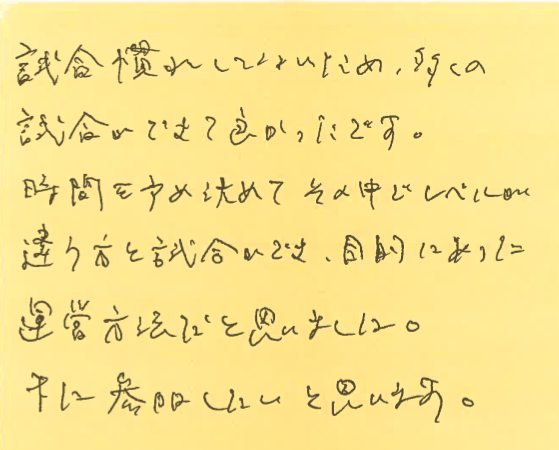 試合慣れしてないため、多くの
試合ができて良かったです。
時間を予め決めてその中でレベルが
違う方と試合ができ、目的にあった
運営方法だと思いました。
また参加したいと思います。